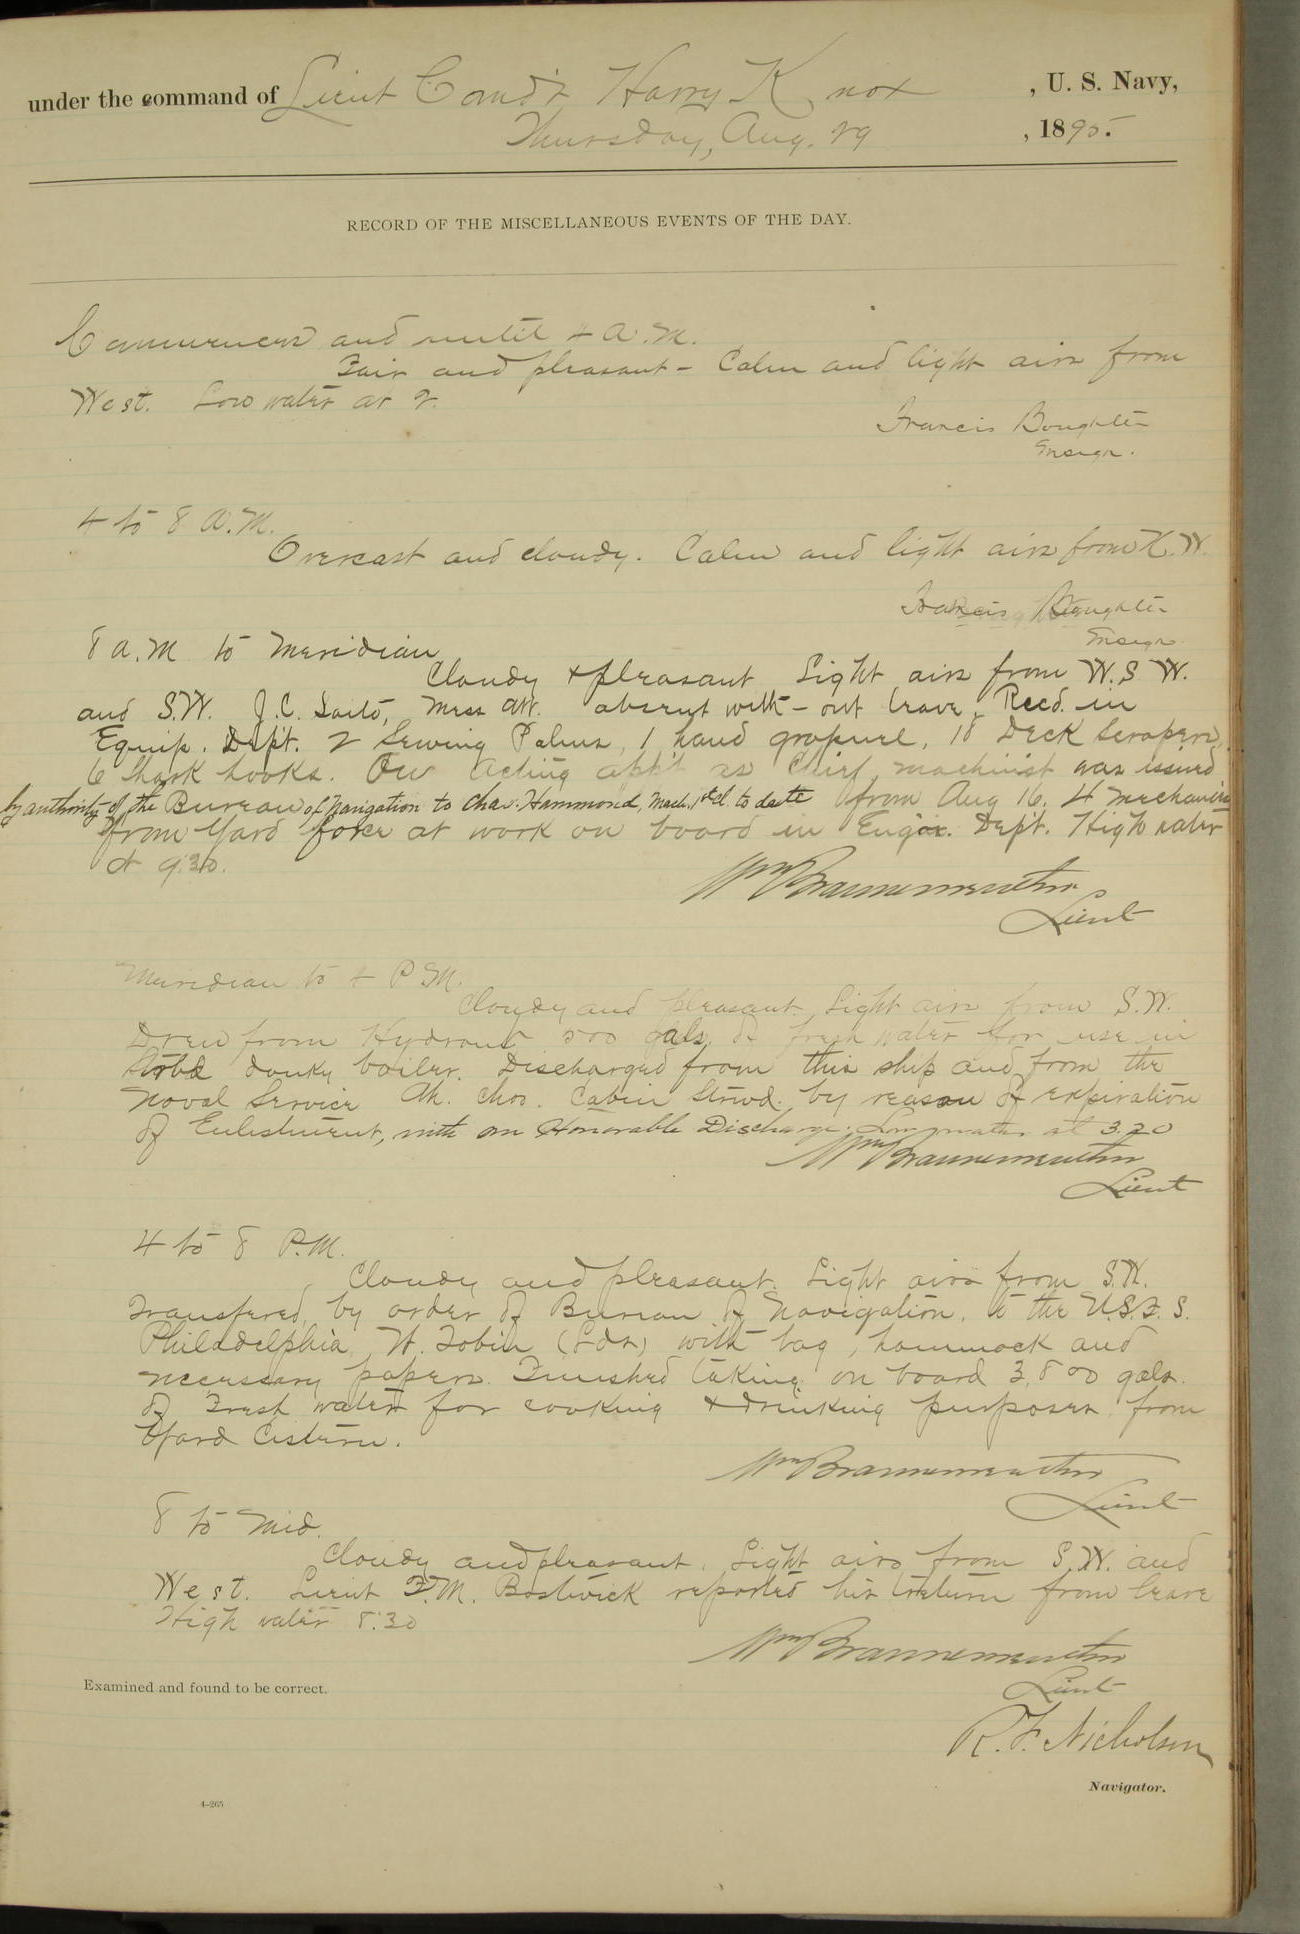 under the command of Lieut Comd'r Harry Knox, U. S. Navy,
Thursday, Aug. 29, 1895.
RECORD OF THE MISCELLANEOUS EVENTS OF THE DAY.
Commences and until 4 A.M.
Fair and pleasant - Calm and light airs from
West. Low water at 2.
Francis Boughter
Ensign.
4 to 8 A.M.
Overcast and cloudy. Calm and light airs from N.W.
Francis Boughter
Ensign
8 a.m to Meridian
Cloudy & pleasant Light airs from W.S.W.
and S.W. J.C. Saito, Mess Att. absent with-out leave. Recd. in
Equip. Dept. 2 Sewing Palms, 1 hand grapnel, 18 Deck Scrapers,
6 Shark hooks. An Acting app't as Chief machinist was issued
by authority of the Bureau of Navigation to Chas. Hammond, Mach. 1st cl. to date from Aug 16. 4 mechanics
from Yard force at work on board in Eng'r. Dept. High water
at 9.30.
Wm Braunersreuther
Lieut
Meridian to 4 P.M.
Cloudy and pleasant. Light airs from S.W.
Drew from Hydrant 500 gals. of fresh water for use in
Stbd donkey boiler. Discharged from this ship and from the
Naval Service Ah. Choo. Cabin Stew'd. by reason of expiration
of Enlistment, with an Honorable Discharge. Low water at 3.20
Wm Braunersreuther
Lieut
4 to 8 P.M.
Cloudy and pleasant. Light airs from S.W.
Transfered, by order of Bureau of Navigation, to the U.S.F.S.
Philadelphia, W. Tobin (Lds) with bag, hammock and
necessary papers. Finished taking on board 3,800 gals.
of Fresh water for cooking & drinking purposes from
Yard Cistern.
Wm Braunersreuther
Lieut
8 to Mid.
Cloudy and pleasant. Light airs from S.W. and
West. Lieut F.M. Bostwick reported his return from leave
High water 8.30
Wm Braunersreuther
Lieut
Examined and found to be correct.
R. F. Nicholson
Navigator.
4-265